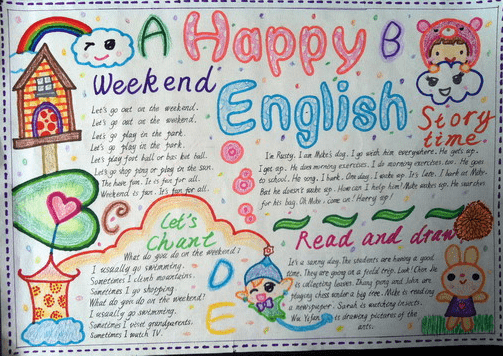 A Happy B
English
Weekend
Let's go out on the weekend.
Let's go out on the weekend.
Let's go play in the park.
Let's go play in the park.
Let's play foot ball or bas ket ball.
Let's go shop ping or play in the sun.
The have fun. It is fun for all.
Weekend is fun. It's fun for all.
Story
time.
I'm Rusty. I am Mike's dog. I go with him everywhere. He gets up.
I get up. He does morning exercises. I do morning exercises, too. He goes
to school. He sings. I bark. One day, I wake up. It's late. I bark at Mike.
But he doesn't wake up. How can I help him? Mike wakes up. He searches
for his bag. Oh Mike, come on! Hurry up!
C
Let's
Chant
What do you do on the weekend?
I usually go swimming.
Sometimes I climb mountains.
Sometimes I go shopping.
What do you do on the weekend?
I usually go swimming.
Sometimes I visit grandparents.
Sometimes I watch TV.
D
E
Read and draw
It's a sunny day. The students are having a good
time. They are on a field trip. Look! Chen Jie
is collecting leaves. Zhang Peng and John are
playing chess under a big tree. Mike is reading
a newspaper. Sarah is watching insects.
Wu Yifan is drawing pictures of the
ants.